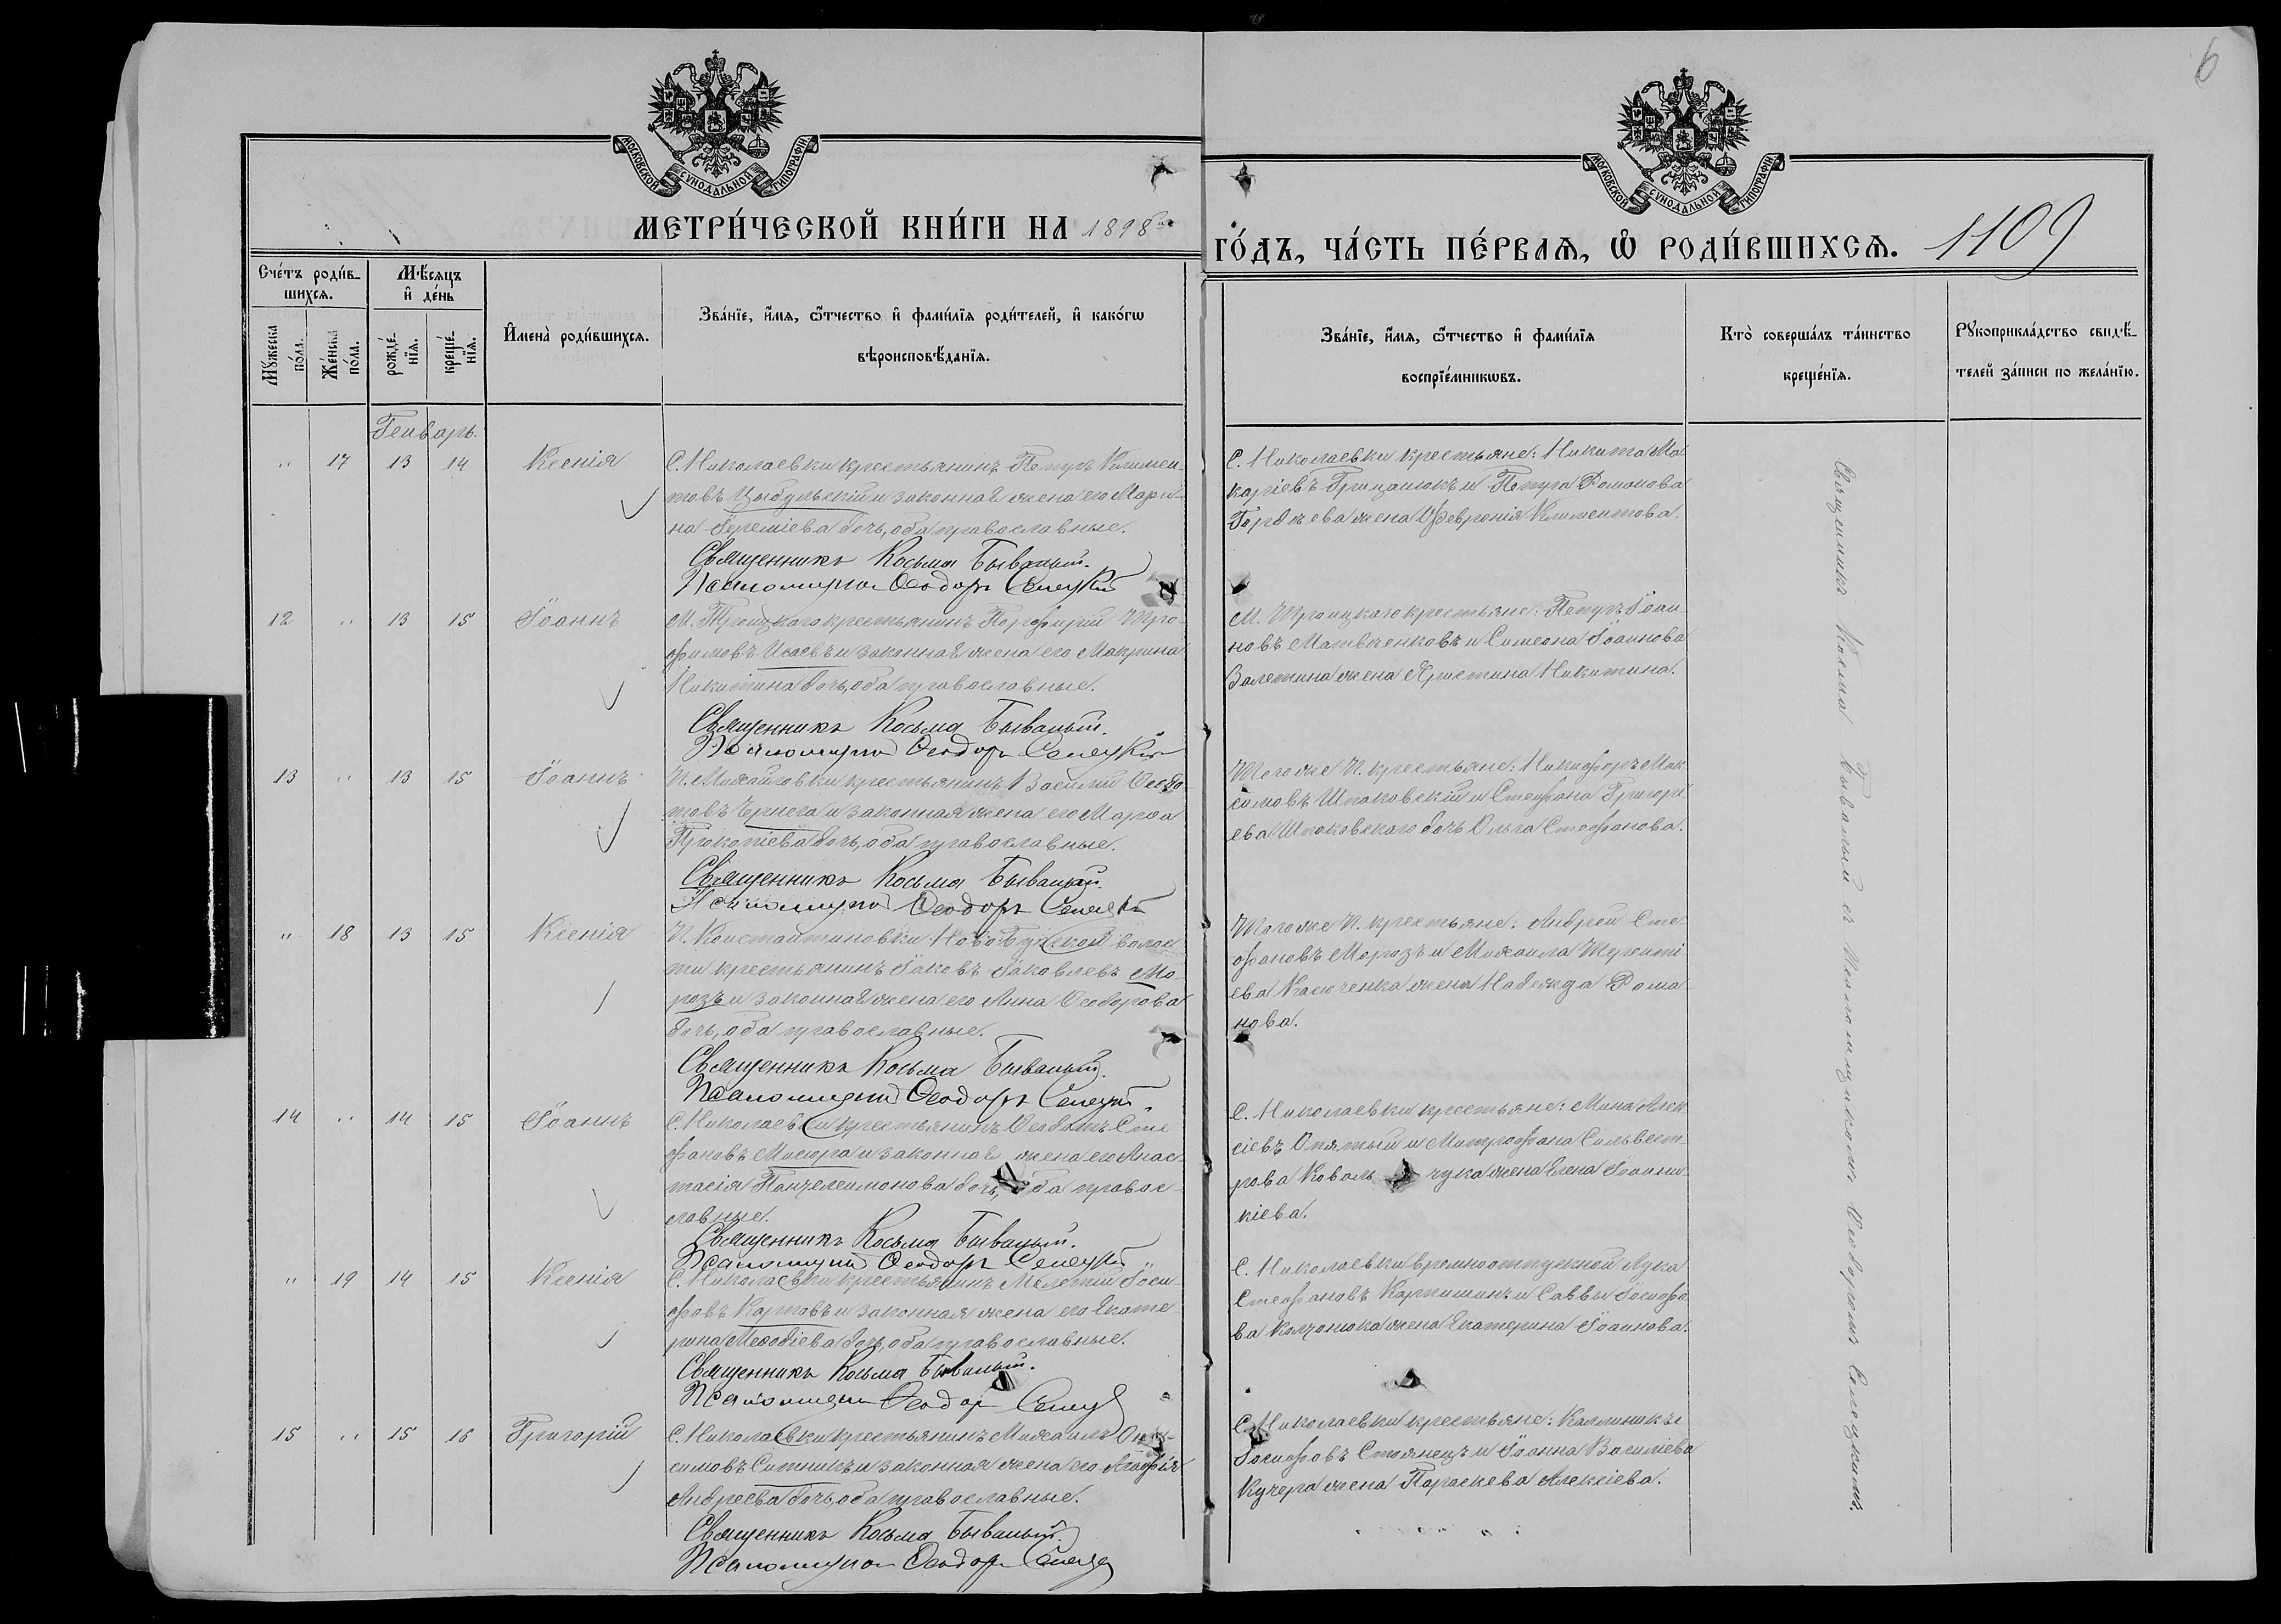 6
МОСКОВСКОЙ СУНОДАЛЬНОЙ ТИПОГРАФІИ.
МЕТРИ́ЧЕСКОЙ КНИ́ГИ НА 1898
МОСКОВСКОЙ СУНОДАЛЬНОЙ ТИПОГРАФІИ.
ГО́ДЪ, ЧА́СТЬ ПЕ́РВАѦ, Ѡ РОДИ́ВШИХСѦ. 1109
Сче́тъ роди́в-
шихсѧ.
Мꙋ́жеска по́ла.
Же́нска по́ла.
Мѣ́сяцъ
и҆ де́нь
рожде́-нїѧ.
креще́-нїѧ.
И҆мена̀ роди́вшихсѧ.
Зва́нїе, и҆́мѧ, ѻ҆́тчество и҆ фами́лїѧ роди́телей, и҆ како́гѡ
вѣроисповѣ́данїѧ.
Зва́нїе, и҆́мѧ, ѻ҆́тчество и҆ фами́лїѧ
воспрїе́мникѡвъ.
Кто̀ соверша́лъ та́инство
креще́нїѧ.
Рꙋкоприкла́дство свидѣ́-
телей за́писи по жела́нїю.
Генварь.
" 17 13 14 Ксенія
С. Николаевки крестьянинъ Петръ Климен-
товъ Цыбульскій и законная жена его Мари-
на Іереміева дочь, оба православные.
Священникъ Косьма Бывалый.
Псаломщикъ Ѳеодоръ Селецкій
С. Николаевки крестьяне: Никита Ма
каріевъ Грицанюкъ и Петра Романова
Гордѣева жена Февронія Климентова.
12 " 13 15 Іоаннъ
М. Троицкаго крестьянинъ Порфирій Тро-
фимовъ Исаевъ и законная жена его Макрина
Никитина дочь, оба православные.
Священникъ Косьма Бывалый.
Псаломщикъ Ѳеодоръ Селецкій
М. Троицкаго крестьяне: Петръ Іоан
новъ Матвѣенковъ и Симеона Іоаннова
Валетина жена Христина Никитина.
13 " 13 15 Іоаннъ
П. Михайловки крестьянинъ Василій Ѳеодо
товъ Чернега и законная жена его Марѳа
Прокопіева дочь, оба православные.
Священникъ Косьма Бывалый.
Псаломщикъ Ѳеодоръ Селецкій
Того же П. крестьяне: Никифоръ Мак
симовъ Шпаковскій и Стефана Григорі
ева Шпаковскаго дочь Ольга Стефанова.
" 18 13 15 Ксенія
П. Константиновки Ново волос
ти крестьянинъ Іаковъ Іаковлевъ Мо-
розъ и законная жена его Анна Ѳеодорова
дочь, оба православные.
Священникъ Косьма Бывалый.
Псаломщикъ Ѳеодоръ Селецкій
Того же П. крестьяне: Андрей Сте
фановъ Морозъ и Михаила Теренті
ева Касюченка жена Надежда Рома
нова.
14 " 14 15 Іоаннъ
С. Николаевки крестьянинъ Ѳеодотъ Сте
фановъ Мисюра и законная жена его Анас
тасія Пантелеимонова дочь, оба правос
лавные.
Священникъ Косьма Бывалый.
Псаломщикъ Ѳеодоръ Селецкій
С. Николаевки крестьяне: Мина Алек
сіевъ Опятый и Митрофана Сильвест
рова Коваль чука жена Елена Іоанни
кіева.
" 19 14 15 Ксенія
С. Николаевки крестьянинъ Мелетій Іоси
фовъ Карповъ и законная жена его Екате
рина Меѳодіева дочь, оба православные.
Священникъ Косьма Бывалый.
Псаломщикъ Ѳеодоръ
С. Николаевки времноотпускной Лука
Стефановъ Карпишинъ и Саввы Іосифо
ва жена Екатерина Іоаннова.
15 " 15 16 Григорій
С. Николаевки крестьянинъ Михаилъ Они
симовъ Ситникъ и законная жена его Агафія
Андреева дочь, оба православные.
Священникъ Косьма Бывалый.
Псаломщикъ Ѳеодоръ
С. Николаевки крестьяне: Каллиникъ
Іосифовъ Стоянецъ и Іоанна Василіева
Кучера жена Параскева Алексіева.
Священникъ Косьма Бывалый съ Псаломщикомъ Ѳеодоромъ Селецкимъ.